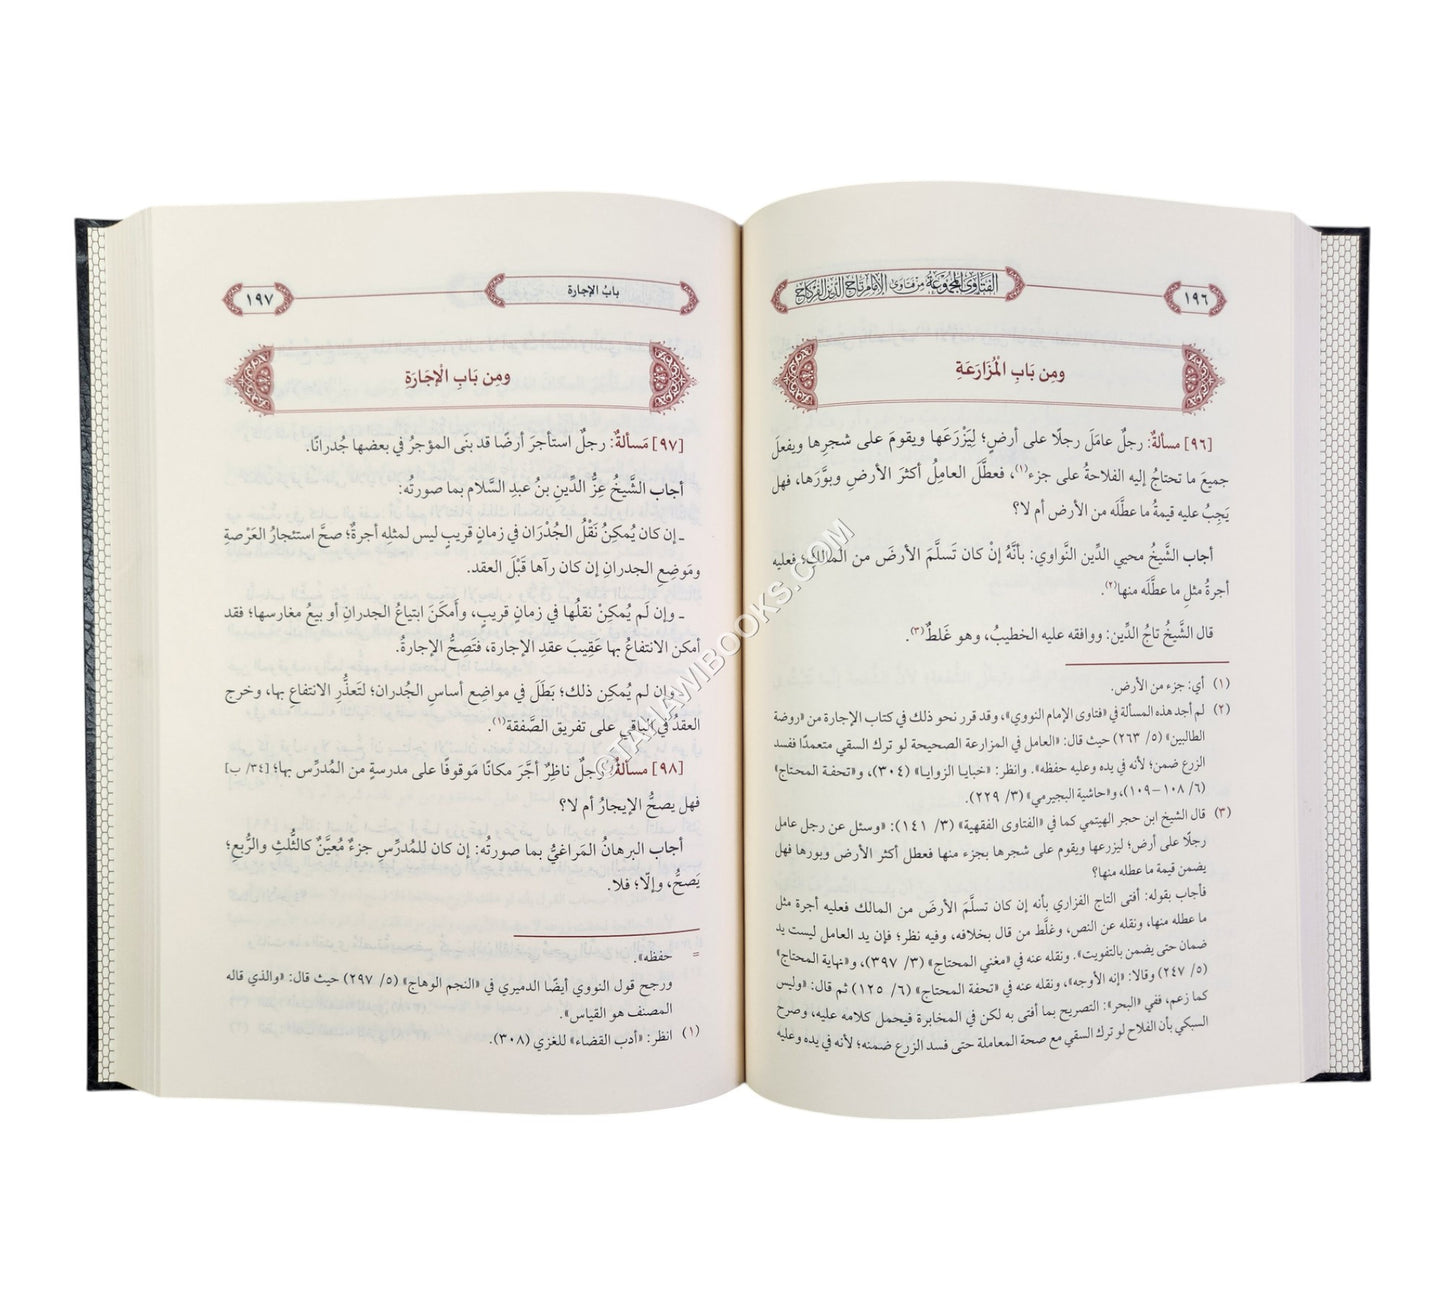 ١٩٦
الفتاوى المجموعة من فتاوى الإمام تاج الدين الفركاح
ومِن بَابِ الْمُزَارَعَةِ
[٩٦] مسألةٌ: رجلٌ عامَلَ رجلًا على أرضٍ؛ لِيَزْرَعَها ويقومَ على شجرِها ويفعلَ
جميعَ ما تحتاجُ إليه الفلاحةُ على جزء(١)، فعطَّلَ العامِلُ أكثرَ الأرضِ وبوَّرَها، فهل
يَجِبُ عليه قيمةُ ما عطَّلَه من الأرض أم لا؟
أجاب الشَّيخُ محيي الدِّين النَّواوي: بأنَّهُ إنْ كان تَسلَّمَ الأرضَ من المالك؛ فعليه
أجرةُ مثلِ ما عطَّلَه منها(٢).
قال الشَّيخُ تاجُ الدِّين: ووافقه عليه الخطيبُ، وهو غَلطٌ(٣).
(١) أي: جزء من الأرض.
(٢) لم أجد هذه المسألة في «فتاوى الإمام النووي»، وقد قرر نحو ذلك في كتاب الإجارة من «روضة
الطالبين» (٥/ ٢٦٣) حيث قال: «العامل في المزارعة الصحيحة لو ترك السقي متعمدًا ففسد
الزرع ضمن؛ لأنه في يده وعليه حفظه». وانظر: «خبايا الزوايا» (٣٠٤)، و«تحفة المحتاج»
(٦/ ١٠٨-١٠٩)، و«حاشية البجيرمي» (٣/ ٢٢٩).
(٣) قال الشيخ ابن حجر الهيتمي كما في «الفتاوى الفقهية» (٣/ ١٤١): «وسئل عن رجل عامل
رجلًا على أرض؛ ليزرعها ويقوم على شجرها بجزء منها فعطل أكثر الأرض وبورها فهل
يضمن قيمة ما عطله منها؟
فأجاب بقوله: أفتى التاج الفزاري بأنه إن كان تسلَّمَ الأرضَ من المالك فعليه أجرة مثل
ما عطله منها، ونقله عن النص، وغلَّط من قال بخلافه، وفيه نظر؛ فإن يد العامل ليست يد
ضمان حتى يضمن بالتفويت». ونقله عنه في «مغني المحتاج» (٣/ ٣٩٧)، و«نهاية المحتاج»
(٥/ ٢٤٧) وقالا: «إنه الأوجه»، ونقله عنه في «تحفة المحتاج» (٦/ ١٢٥) ثم قال: «وليس
كما زعم، ففي «البحر»: التصريح بما أفتى به لكن في المخابرة فيحمل كلامه عليه، وصرح
السبكي بأن الفلاح لو ترك السقي مع صحة المعاملة حتى فسد الزرع ضمنه؛ لأنه في يده وعليه
باب الإجارة
١٩٧
ومِن بَابِ الْإجَارَةِ
[٩٧] مَسألةٌ: رجلٌ استأجرَ أرضًا قد بنَى المؤجرُ في بعضها جُدرانًا.
أجاب الشَّيخُ عزُّ الدِّينِ بنُ عبدِ السَّلام بما صورتُه:
ـ إن كان يُمكِنُ نَقْلُ الجُدْرَان في زمانٍ قريبٍ ليس لمثلِه أجرةٌ؛ صحَّ استئجارُ العَرْصةِ
ومَوضِعِ الجدرانِ إن كان رآها قَبْلَ العقد.
ـ وإن لَم يُمكِنْ نقلُها في زمانٍ قريبٍ، وأَمكَنَ ابتياعُ الجدرانِ أو بيعُ مغارسِها؛ فقد
أمكن الانتفاعُ بها عَقِيبَ عقدِ الإجارة، فتَصِحُّ الإجارةُ.
ـ وإن لم يُمكِن ذلك؛ بَطَلَ في مواضِعِ أساسِ الجُدران؛ لتَعذُّرِ الانتفاعِ بها، وخرج
العقدُ في الباقي على تفريق الصَّفقة(١).
[٩٨] مسألةٌ: رجلٌ ناظِرٌ أجَّرَ مكانًا مَوقوفًا على مدرسةٍ من المُدرِّس بها؛ [٣٤/ ب]
فهل يصحُّ الإيجارُ أم لا؟
أجاب البرهانُ المَراغيُّ بما صورته: إن كان للمُدرِّسِ جزءٌ مُعيَّنٌ كالثُّلثِ والرُّبعِ؛
يَصحُّ، وإلّا؛ فلا.
= حفظه».
ورجح قول النووي أيضًا الدميري في «النجم الوهاج» (٥/ ٢٩٧) حيث قال: «والذي قاله
المصنف هو القياس».
(١) انظر: «أدب القضاء» للغزي (٣٠٨).
©TAHAWIBOOKS.COM